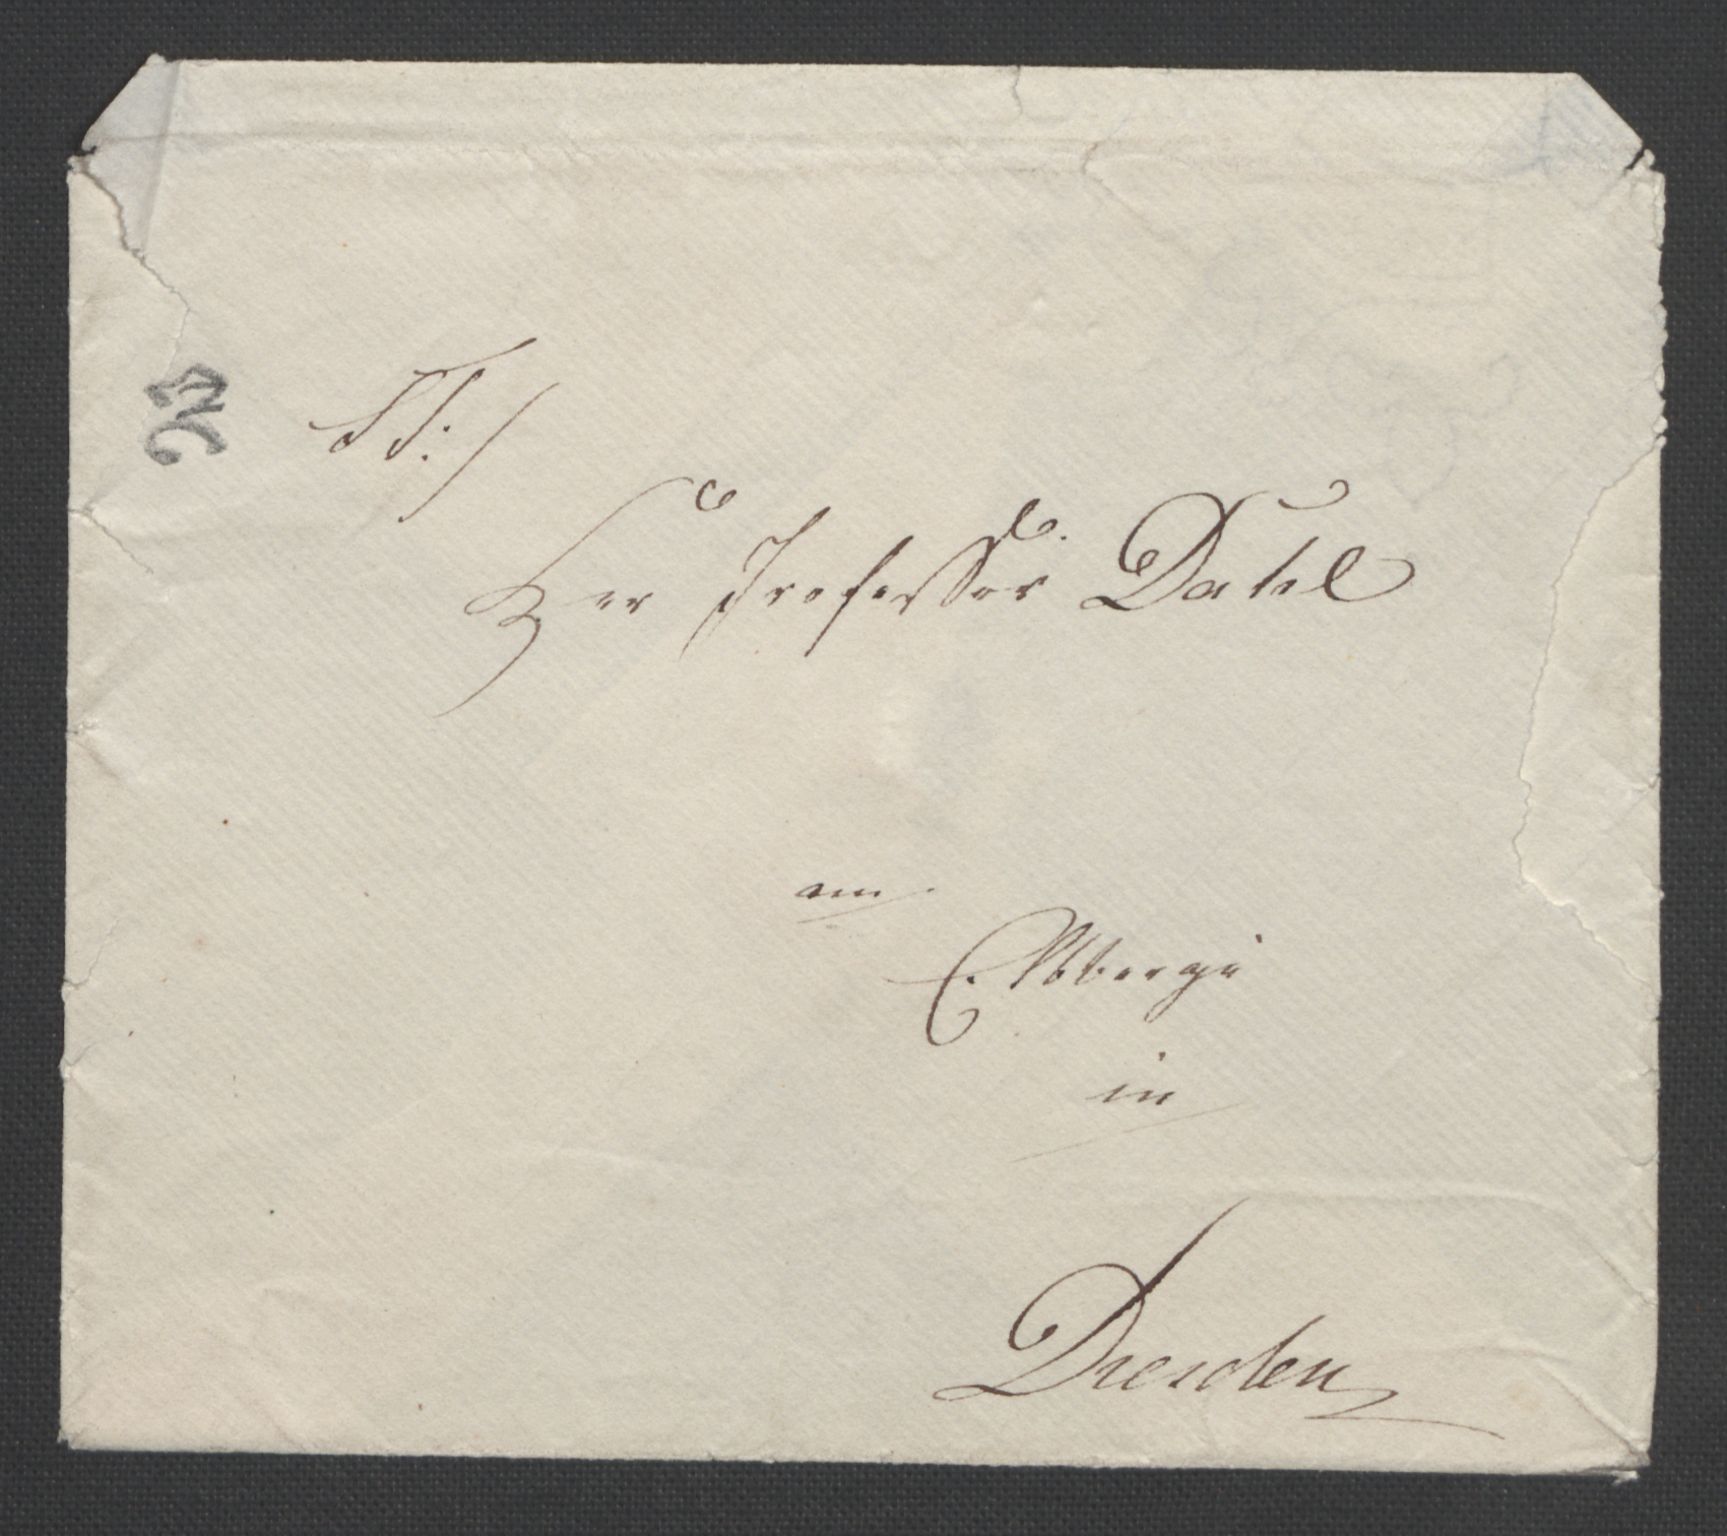 23
TT:/
Herr Professor Datel
am
Elbberge
in
Dresden